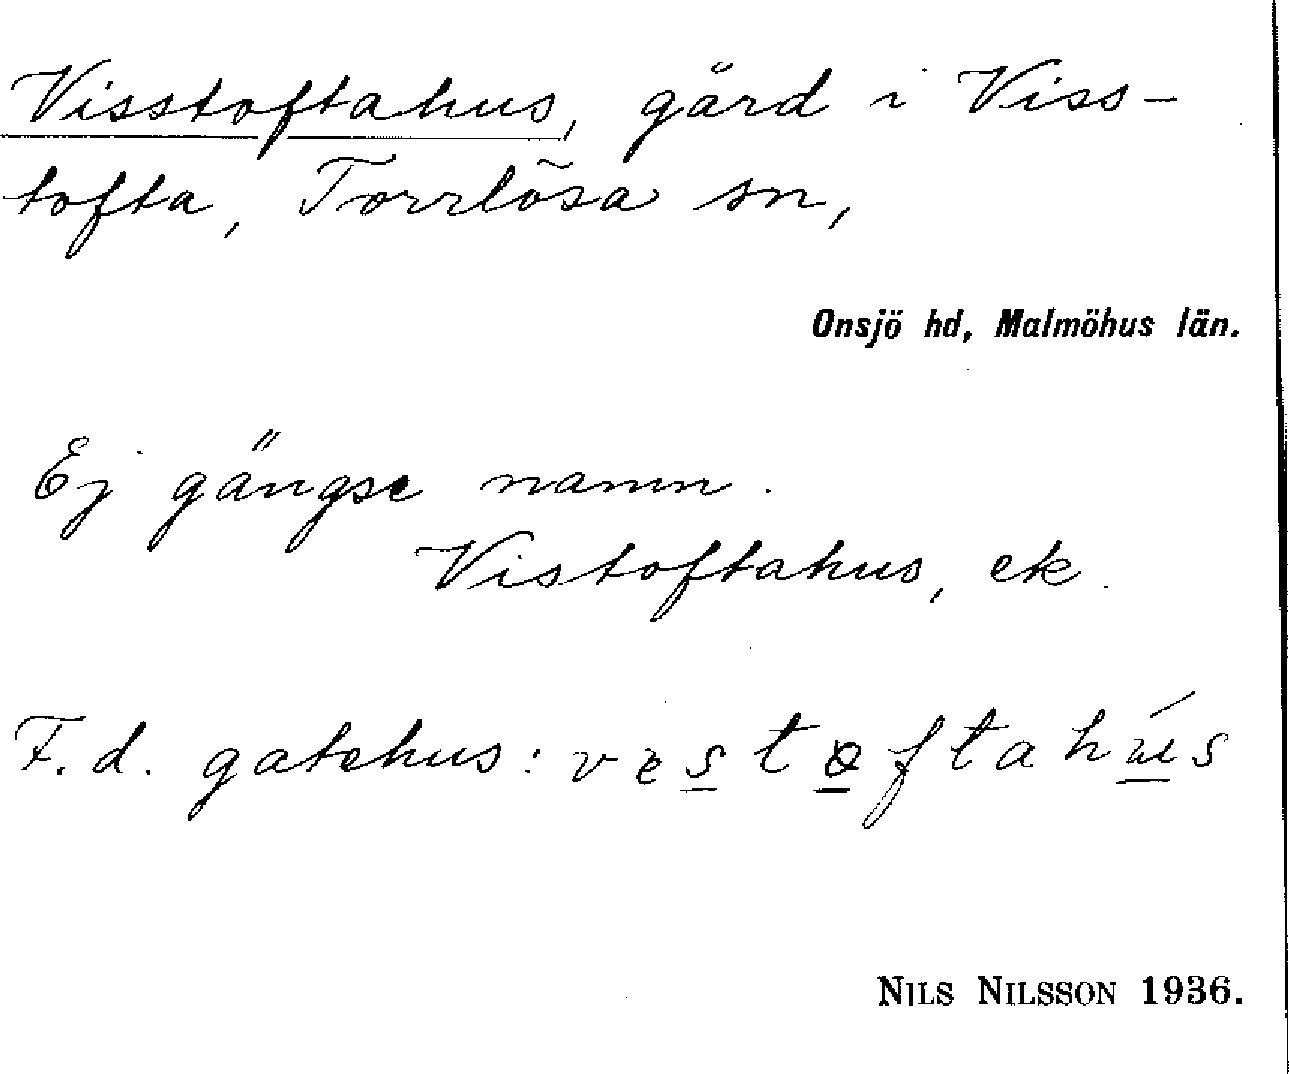 Visstoftahus, gård i Viss-
tofta, Torrlösa sn,
Onsjö hd, Malmöhus län.
Ej gängse namn.
Vistoftahus, ek.
F.d. gatehus:
NILS NILSSON 1936.